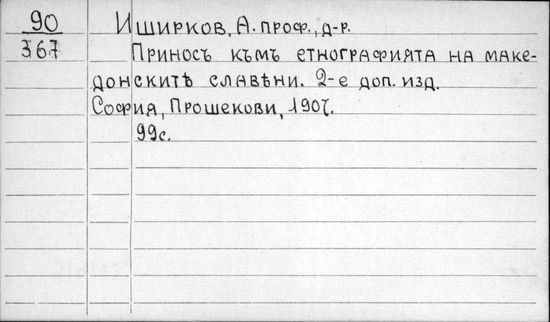 90
367
Иширков, А. проф., д-р.
Приносъ къмъ етнографията на маке-
донскитѣ славѣни. 2-е доп. изд.
София, Прошекови, 1907.
99с.